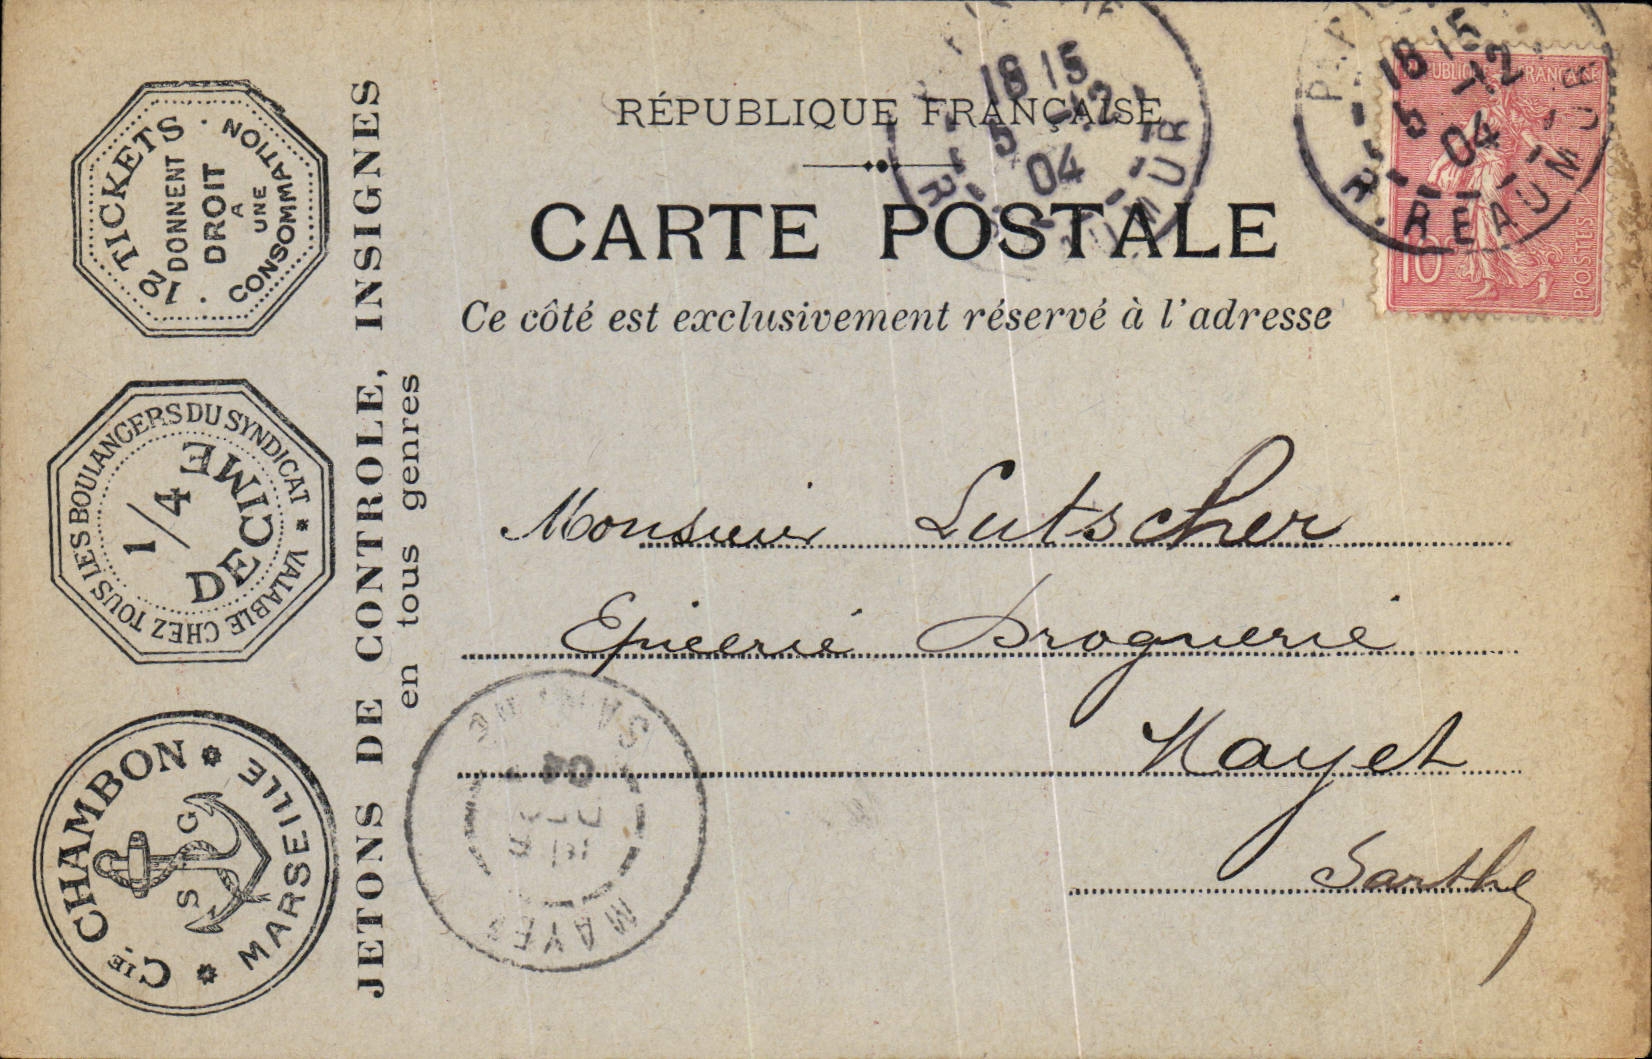 RÉPUBLIQUE FRANÇAISE
CARTE POSTALE
Ce côté est exclusivement réservé à l'adresse
Monsieur Lutscher
Epicerie Droguerie
Mayet
Sarthe
JETONS DE CONTROLE, INSIGNES
en tous genres
12 TICKETS
DONNENT
DROIT
A
UNE
CONSOMMATION
VALABLE CHEZ TOUS LES BOULANGERS DU SYNDICAT *
1/4
DECIME
CIE. CHAMBON *
MARSEILLE *
S G
RÉPUBLIQUE FRANÇAISE
10
POSTES
PARIS
18 15
5 12
04
R. REAUMUR
18 15
5 12
04
R. MUR
MAYET
04